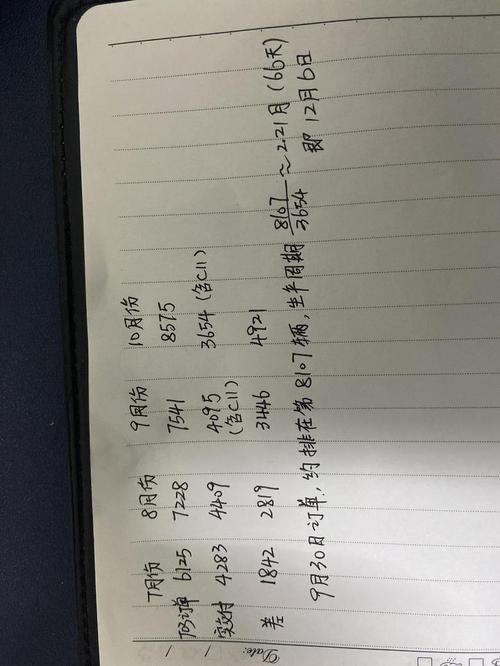 Date:
7月份 8月份 9月份 10月份
/ T03订单 6125 7228 7541 8575
/ 实交付 4283 4409 4095 3654 (含C11)
(含C11)
差 1842 2819 3446 4921
9月30日订单，约排在第8107辆，生产周期 8107/3654 ~ 2.21月 (66天)
即 12月6日